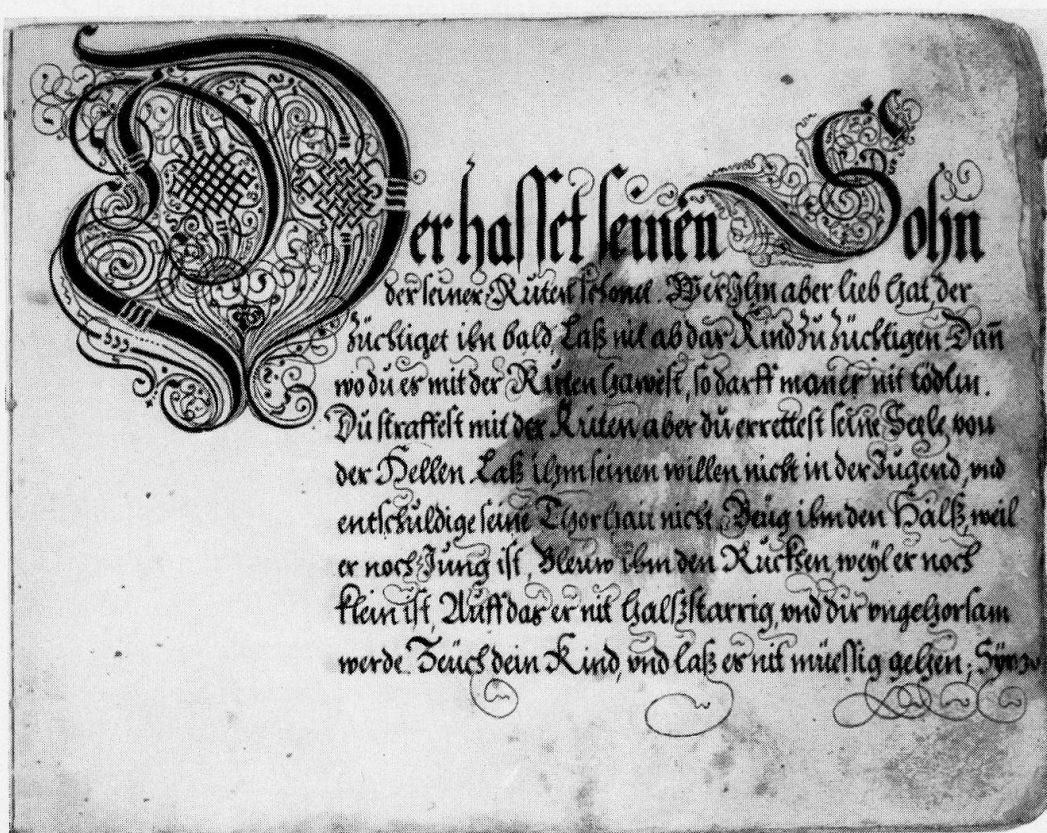 Der hasset seinen Sohn
der seiner Ruten schonet. Wer Ihn aber lieb hat, der
züchtiget ihn bald, Laß nit ab das Kind zu züchtigen Dañ
wo du es mit der Ruten hawest, so darff man er nit tödtin.
Du straffest mit der Ruten aber du errettest seine Seele von
der Hellen. Laß ihm seinen willen nicht in der Jugend, vnd
entschuldige seine nicht. Beüg ihm den Halß, weil
er noch Jung ist, Bleüw ihm den Ruckhen, weyl er noch
klein ist, Auff das er nit halßstarrig, vnd dir vngehorsam
werde. Zeüch dein Kind, vnd laß es nit müessig gehen,